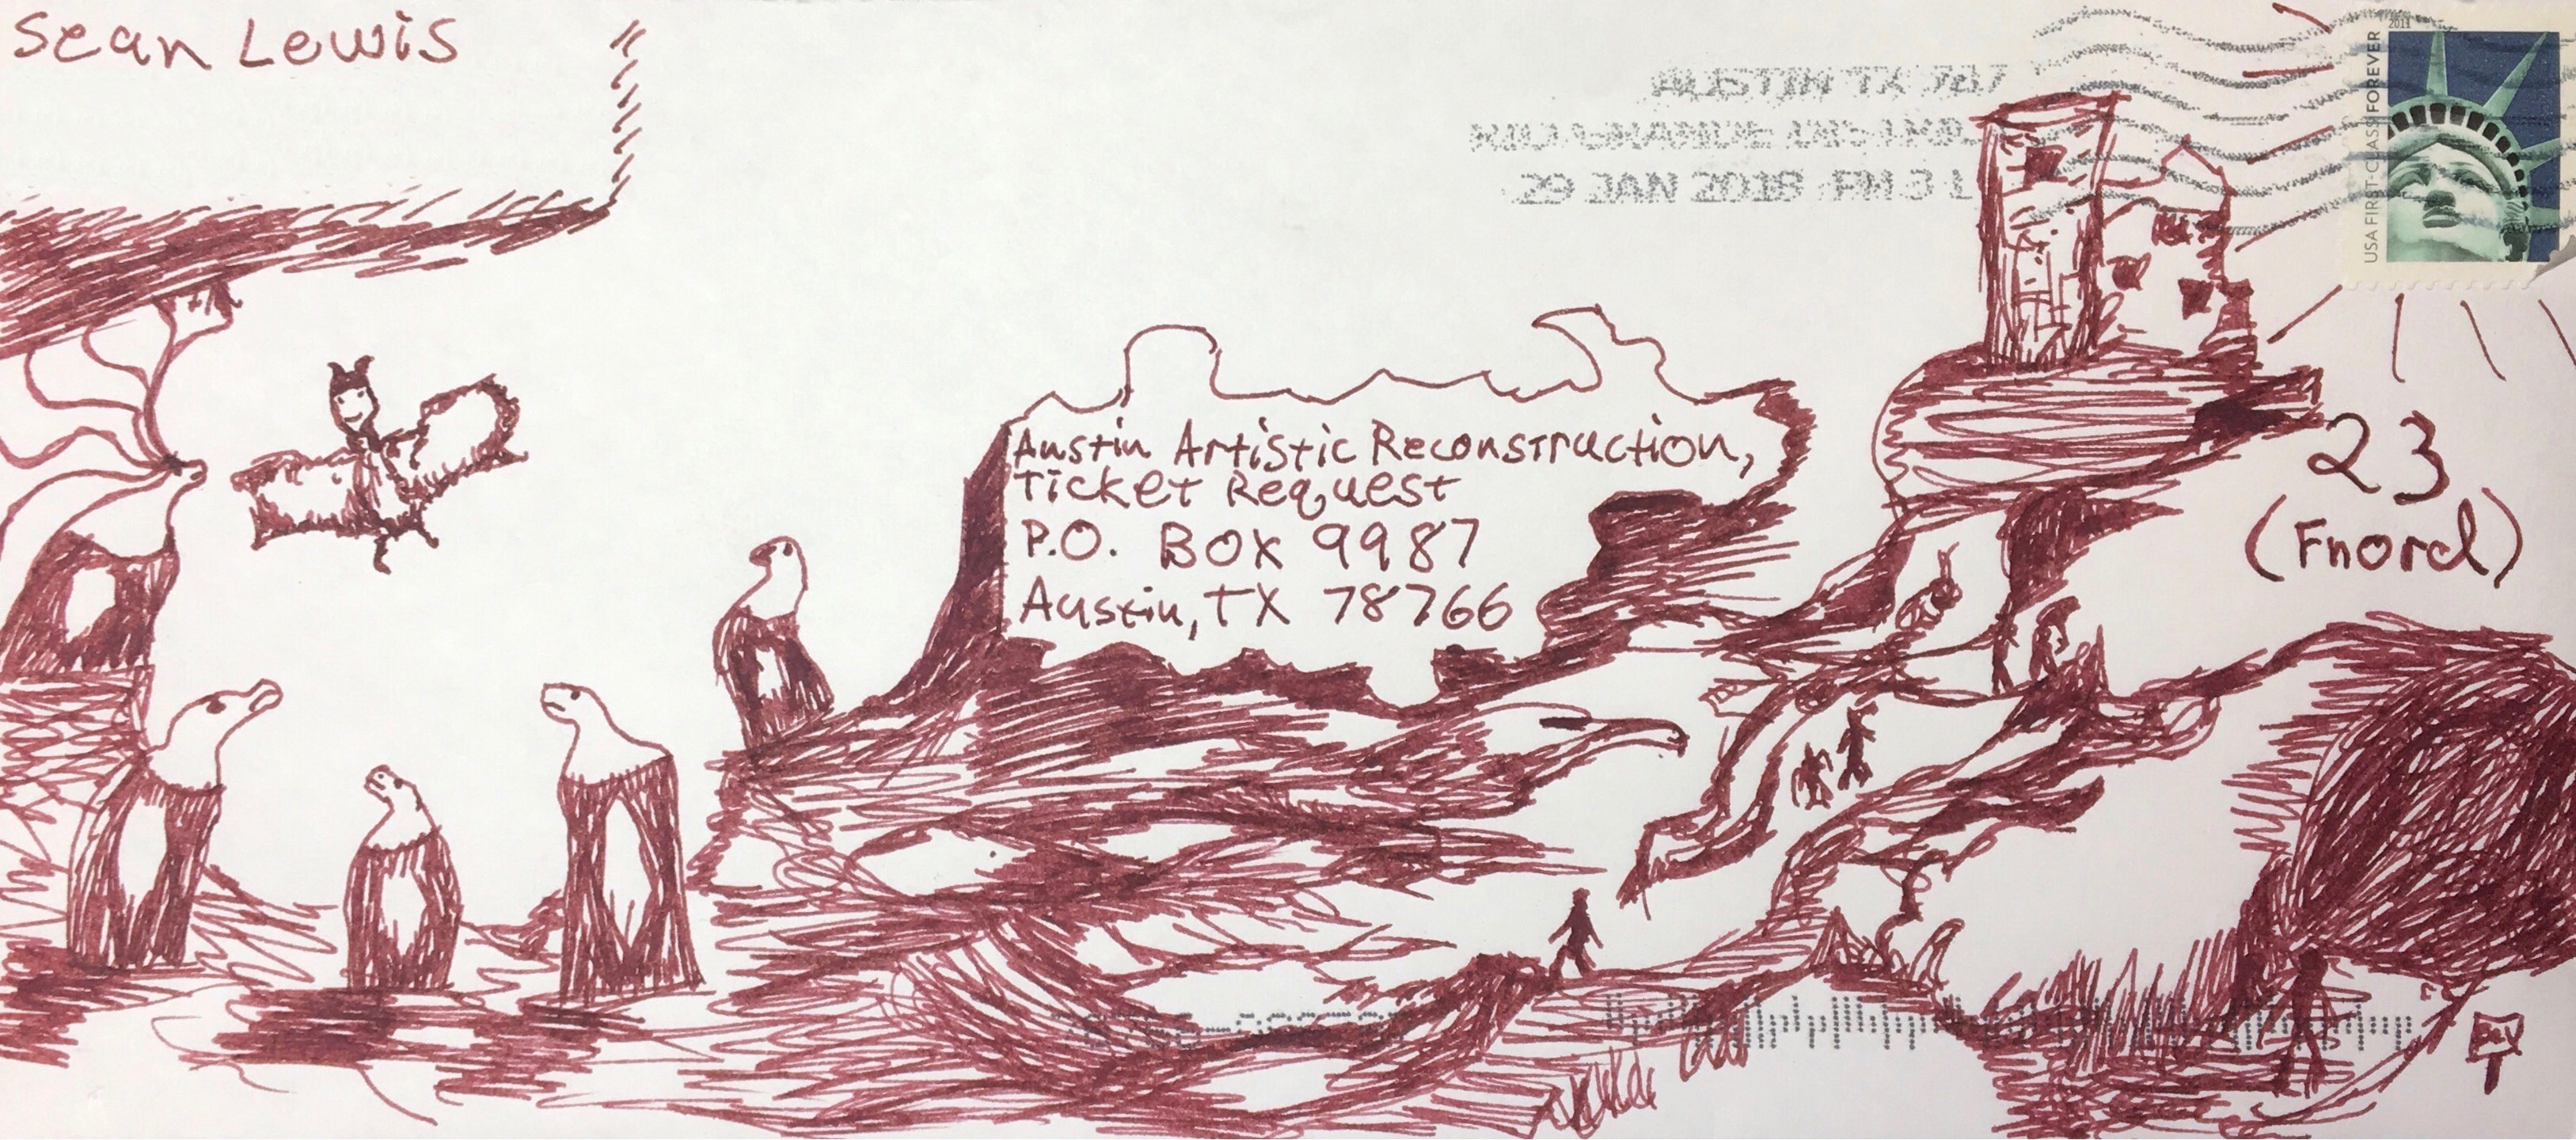 Sean Lewis
AUSTIN TX 787
RIO GRANDE DISTRICT
29 JAN 2018 PM 3 L
2011
USA FIRST-CLASS FOREVER
Austin Artistic Reconstruction,
Ticket Request
P.O. BOX 9987
Austin, TX 78766
23
(Fnord)